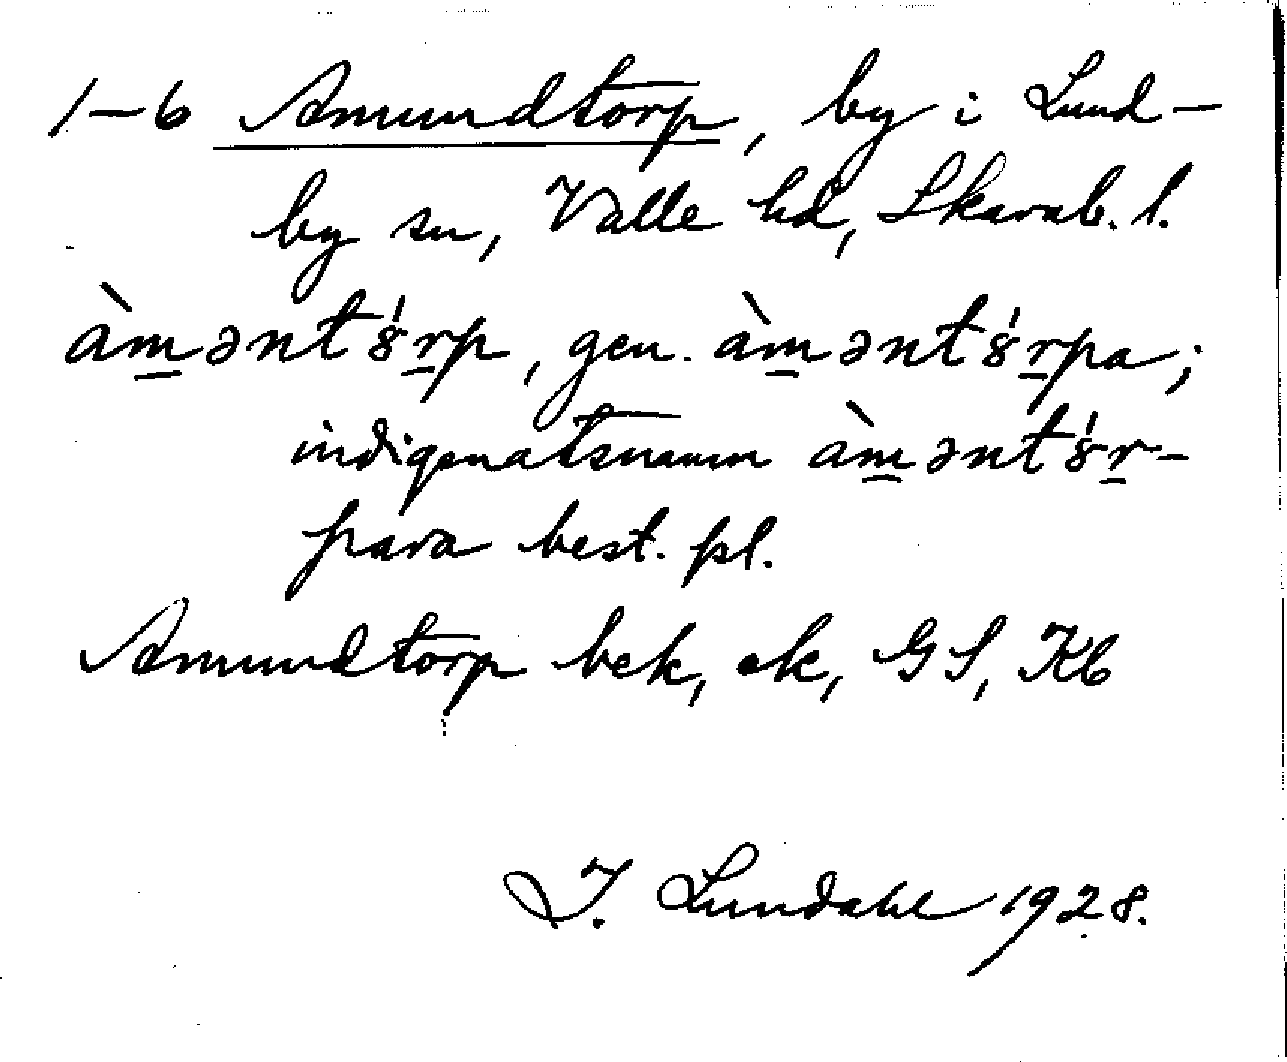 1–6 Amundtorp, by i Lund-
by sn, Valle hd, Skarab. l.
àm̲əntȣ́r̲p, gen. àm̲əntȣ́r̲pa;
indigenatsnamn àm̲əntȣ́r̲-
para best. pl.
Amundtorp bek, ek, GS, Kb
I. Lundahl 1928.